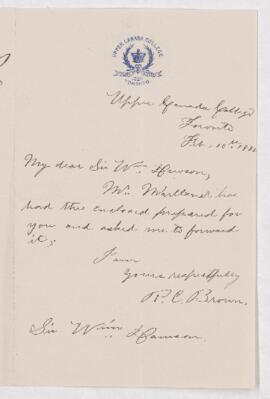 UPPER CANADA COLLEGE
TORONTO
Upper Canada College
Toronto
Feb. 10th
My dear Sir Wm Dawson,
Mr. Martland has
had the enclosed prepared for
you and asked me to forward
it;
I am
Yours respectfully
R. C. Brown.
Sir Wm Dawson.